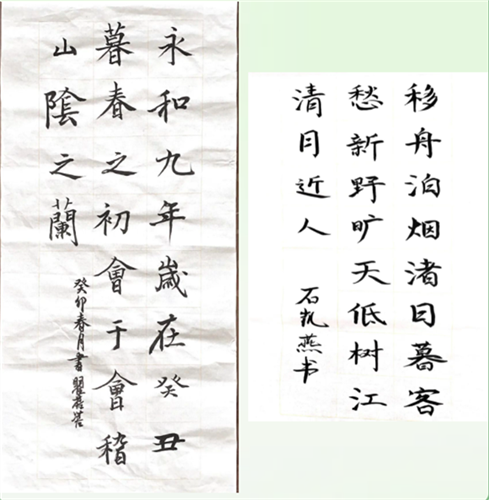 永和九年歲在癸丑
暮春之初會于會稽
山陰之蘭
癸卯春月書
移舟泊烟渚日暮客
愁新野旷天低树江
清月近人
石凯燕书